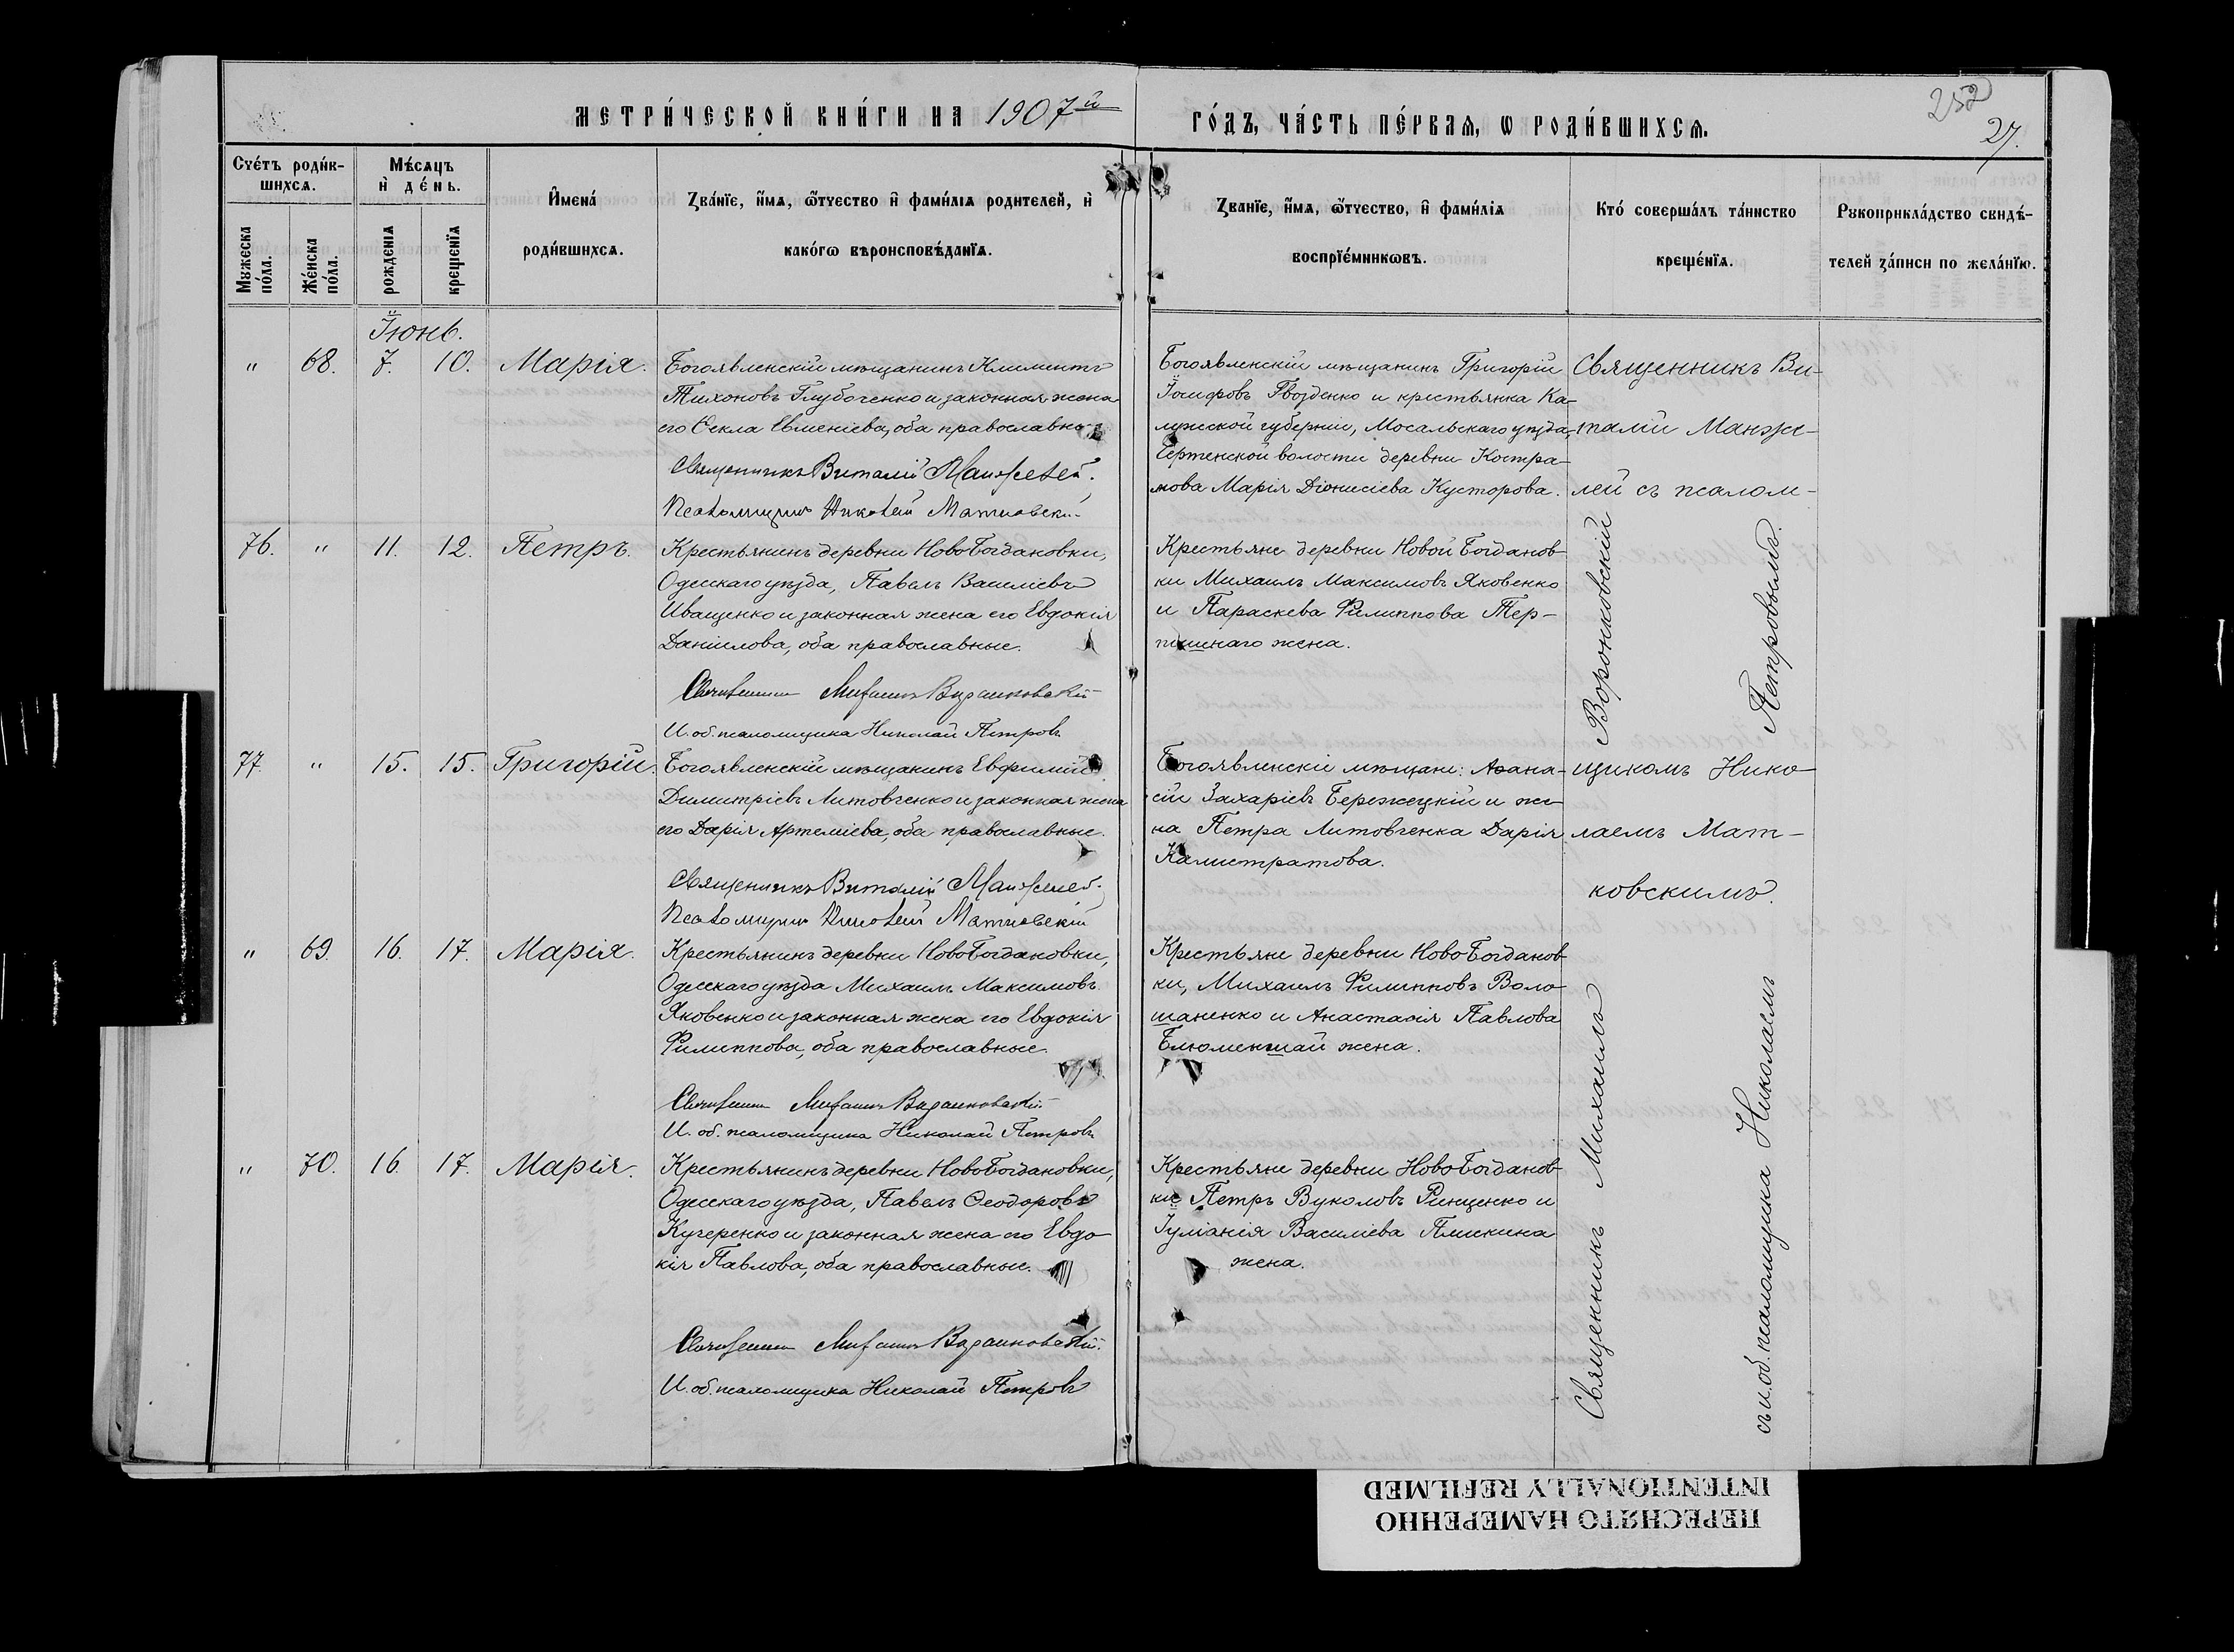 МЕТРИ́ЧЕСКОЙ КНИ́ГИ НА 1907й
ГО́ДЪ, ЧА́СТЬ ПЕ́РВАѦ, Ѡ РОДИ́ВШИХСѦ.
252
27.
Счéтъ роди́в-
шихсѧ.
Мужеска
по́ла.
Же́нска
по́ла.
Мѣ́сѧцъ
и҆ де́нь.
рожденіѧ
крещенїѧ
И҆мена́
роди́вшихсѧ.
Зва́нїе, и҆́мѧ, ѻ҆́тчество и҆ фами́лїѧ родителей, и҆
како́гѡ вѣроисповѣ́данїѧ.
Зва́нїе, и҆́мѧ, ѻ҆́тчество, и҆ фами́лїѧ
воспрїе́мникѡвъ.
Кто́ соверша́лъ та́инство
креще́нїѧ.
Рукоприкла́дство свидѣ́-
телей за́писи по жела́нїю.
Іюнь.
" 68. 7. 10. Марія.
Богоявленскій мѣщанинъ Климентъ
Тихоновъ Глубоченко и законная жена
его Ѳекла Евменіева, оба православные
Священникъ Виталій Манжелей.
Псаломщикъ Николай Матковскій
Богоявленскій мѣщанинъ Григорій
Іосифовъ Гвозденко и крестьянка Ка-
лужской губерніи, Мосальскаго уѣзда,
Чертенской волости деревни Костра-
мова Марія Діонисіева Кусторова.
Священникъ Ви-
талій Манже-
лей съ псалом-
щикомъ Нико-
лаемъ Мат-
ковскимъ.
76. " 11. 12. Петръ.
Крестьянинъ деревни НовоБогдановки,
Одесскаго уѣзда, Павелъ Василіевъ
Иващенко и законная жена его Евдокія
Даніилова, оба православные.
Священникъ Михаилъ Воронковскій
И. об. псаломщика Николай Петровъ
Крестьяне деревни Новой Богданов-
ки Михаилъ Максимовъ Яковенко
и Параскева Филиппова Тер-
жена.
77. " 15. 15. Григорій.
Богоявленскій мѣщанинъ Евфимій
Димитріевъ Литовченко и законная жена
его Дарія Артеміева, оба православные.
Священникъ Виталій Манжелей.
Псаломщикъ Николай Матковскій
Богоявленскіе мѣщане: Аѳана-
сій Захаріевъ Бережецкій и же-
на Петра Литовченка Дарія
Калистратова.
" 69. 16. 17. Марія.
Крестьянинъ деревни НовоБогдановки,
Одесскаго уѣзда Михаилъ Максимовъ
Яковенко и законная жена его Евдокія
Филиппова, оба православные.
Священникъ Михаилъ Воронковскій
И. об. псаломщика Николай Петровъ
Крестьяне деревни НовоБогданов-
ки, Михаилъ Филипповъ Воло-
шаненко и Анастасія Павлова
жена.
" 70. 16. 17. Марія.
Крестьянинъ деревни НовоБогдановки,
Одесскаго уѣзда, Павелъ Ѳеодоровъ
Кучеренко и законная жена его Евдо-
кія Павлова, оба православные.
Священникъ Михаилъ Воронковскій.
И. об. псаломщика Николай Петровъ
Крестьяне деревни НовоБогданов-
ки Петръ Вуколовъ и
Іуліанія Василіева
жена.
Священникъ Михаилъ Воронковскій
съ и. об. псаломщика Николаемъ Петровымъ.
ПЕРЕСНЯТО НАМЕРЕННО
INTENTIONALLY REFILMED